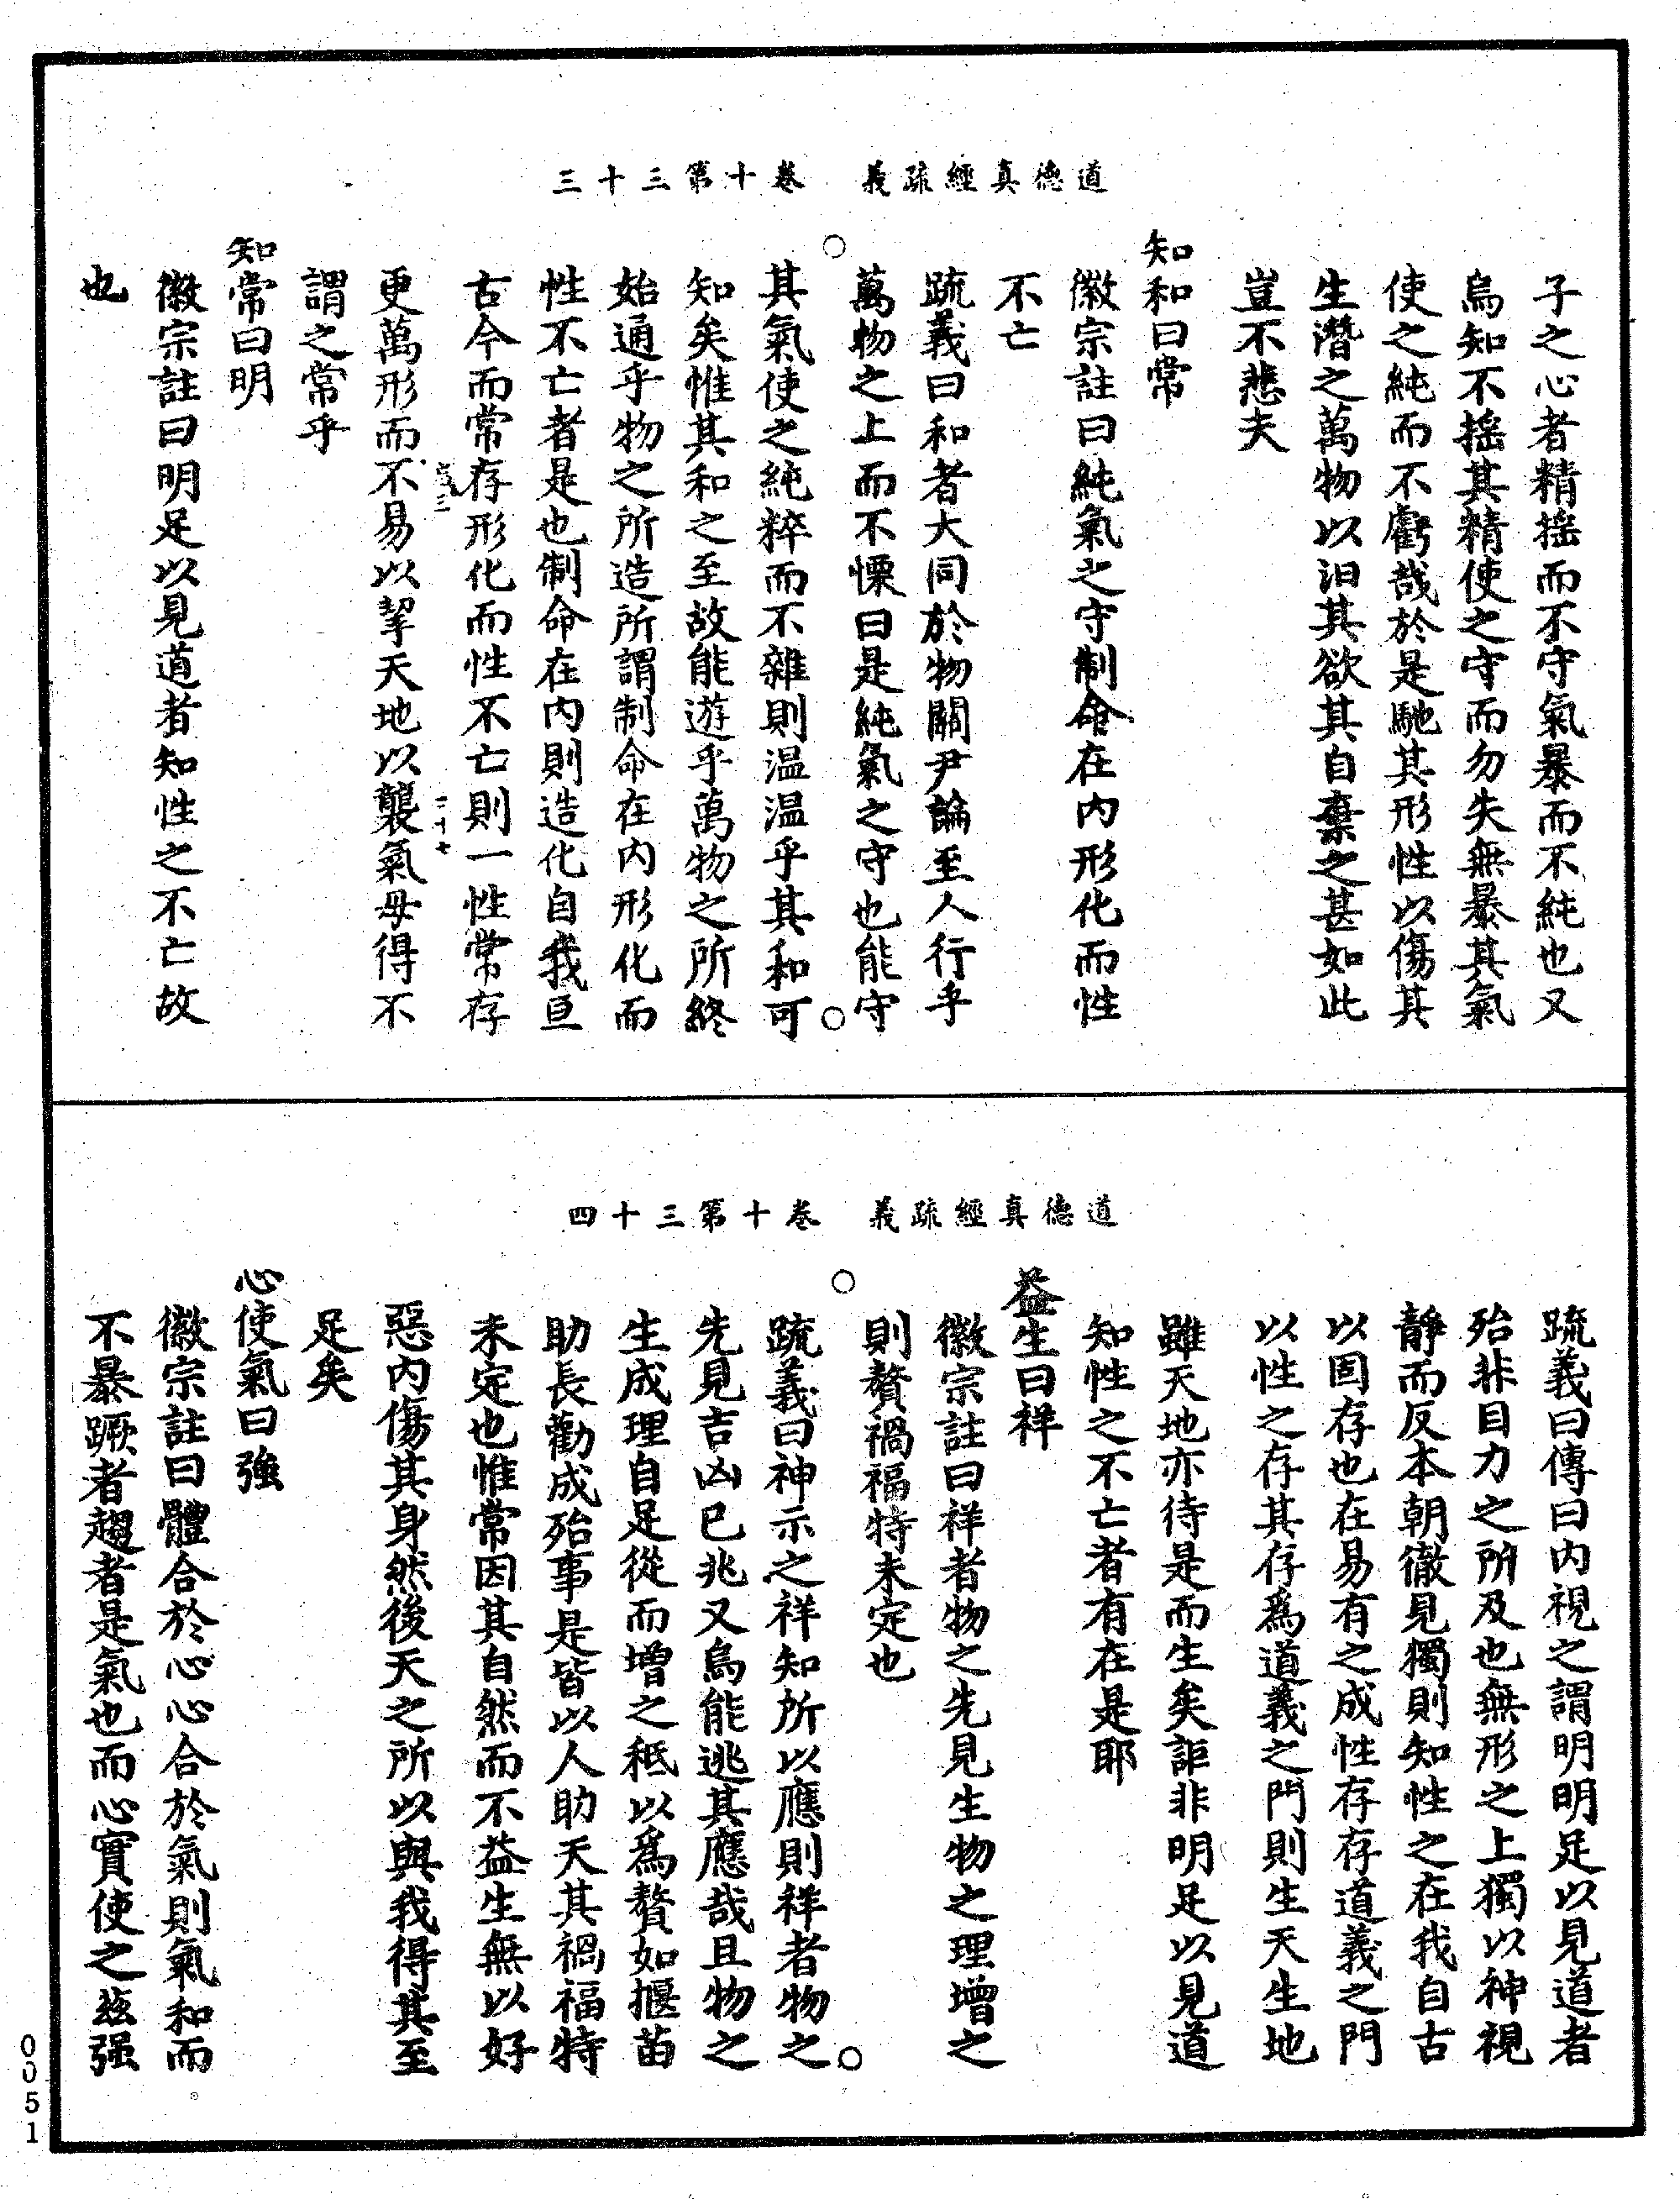 道德真經疏義　卷十第三十三
子之心者精揺而不守氣暴而不純也又
烏知不揺其精使之守而勿失無暴其氣
使之純而不虧哉於是馳其形性以傷其
生潛之萬物以汩其欲其自棄之甚如此
豈不悲夫
知和曰常
徽宗註曰純氣之守制命在内形化而性
不亡
疏義曰和者大同於物關尹論至人行乎
萬物之上而不慄曰是純氣之守也能守
其氣使之純粹而不雜則温温乎其和可
知矣惟其和之至故能遊乎萬物之所終
始通乎物之所造所謂制命在内形化而
性不亡者是也制命在内則造化自我亘
古今而常存形化而性不亡則一性常存
更萬形而不易以挈天地以襲氣母得不
謂之常乎
知常曰明
徽宗註曰明足以見道者知性之不亡故
也
道德真經疏義　卷十第三十四
疏義曰傳曰内視之謂明明足以見道者
殆非目力之所及也無形之上獨以神視
靜而反本朝徹見獨則知性之在我自古
以固存也在易有之成性存存道義之門
以性之存存其存爲道義之門則生天生地
雖天地亦待是而生矣詎非明足以見道
知性之不亡者有在是耶
益生曰祥
徽宗註曰祥者物之先見生物之理增之
則贅禍福特未定也
疏義曰神示之祥知所以應則祥者物之
先見吉凶已兆又烏能逃其應哉且物之
生成理自足從而增之秖以爲贅如揠苗
助長勸成殆事是皆以人助天其禍福特
未定也惟常因其自然而不益生無以好
惡内傷其身然後天之所以與我得其至
足矣
心使氣曰強
徽宗註曰體合於心心合於氣則氣和而
不暴蹶者趨者是氣也而心實使之兹强
0051